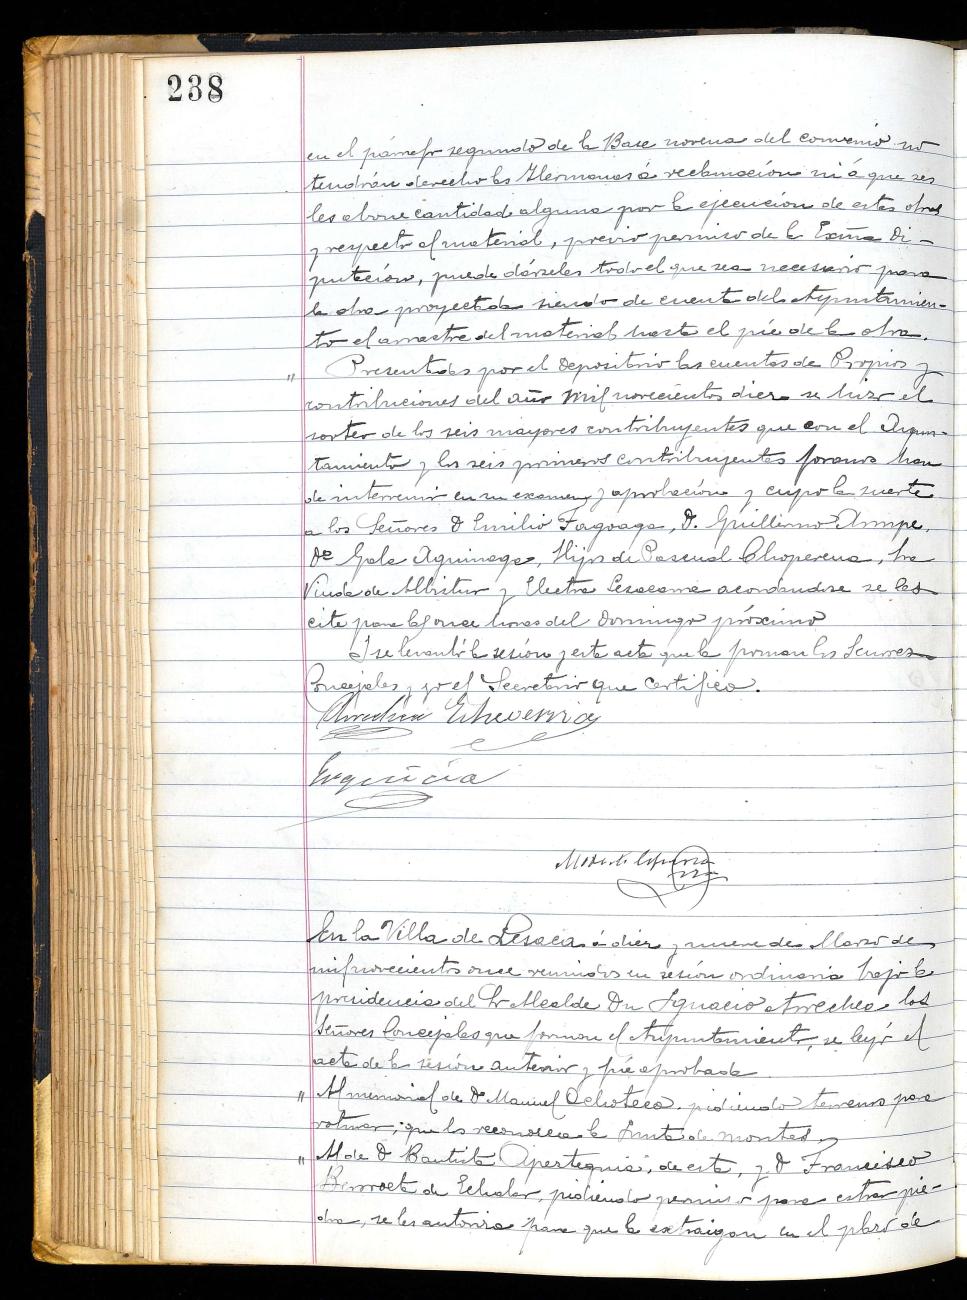 238
en el párrafo segundo de la Base novena del convenio no
tendrán derecho las Hermanas á reclamación ni á que se
les abone cantidad alguna por la ejecución de estas obras
y respecto al material, previo permiso de la Exma Di-
putación, puede dárseles todo el que sea necesario para
la obra proyectada siendo de cuenta del Ayuntamien-
to el arrastre del material hasta el pie de la obra.
" Presentadas por el Depositario las cuentas de Propios y
contribuciones del año mil novecientos diez se hizo el
sorteo de los seis mayores contribuyentes que con el Ayun-
tamiento y los seis primeros contribuyentes foranos han
de intervenir en su examen y aprobación y cupo la suerte
a los Señores D Emilio Fagoaga, D. Guillermo
Dª Gala Aguinaga, Hijos de Pascual Choperena, Sra
Viuda de Albistur y Electra Lesacana acordándose se les
cite para las once horas del Domingo próximo
Y se levantó la sesión y esta acta que la firman los Señores
Concejales y yo el Secretario que certifico.
Arrechea Echeverria
Ergüicia
En la Villa de Lesaca á diez y nueve de Marzo de
mil novecientos once reunidos en sesión ordinaria bajo la
presidencia del Sr Alcalde Dn Ignacio Arrechea los
Señores Concejales que forman el Ayuntamiento, se leyó el
acta de la sesión anterior y fué aprobada
" Al memorial de Dn Manuel Ochoteco pidiendo terreno para
roturar, que los reconozca la Junta de montes.
" Al de D Bautista Aperteguia, de esta, y D Francisco
de Echalar, pidiendo permiso para extraer pie-
dra, se les autoriza para que la extraigan en el plazo de